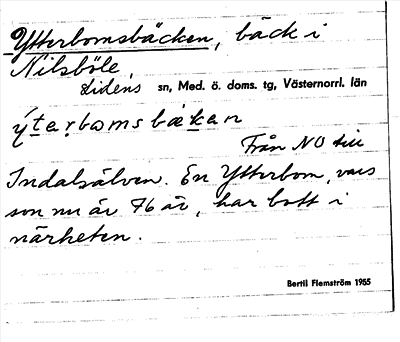 Ytterbomsbäcken, bäck i
Nilsböle,
Lidens sn, Med. ö. doms. tg, Västernorrl. län
ýtәrbomsbækәn
Från NO till
Indalsälven. En Ytterbom, vars
son nu är 76 år, har bott i
närheten.
Bertil Flemström 1955